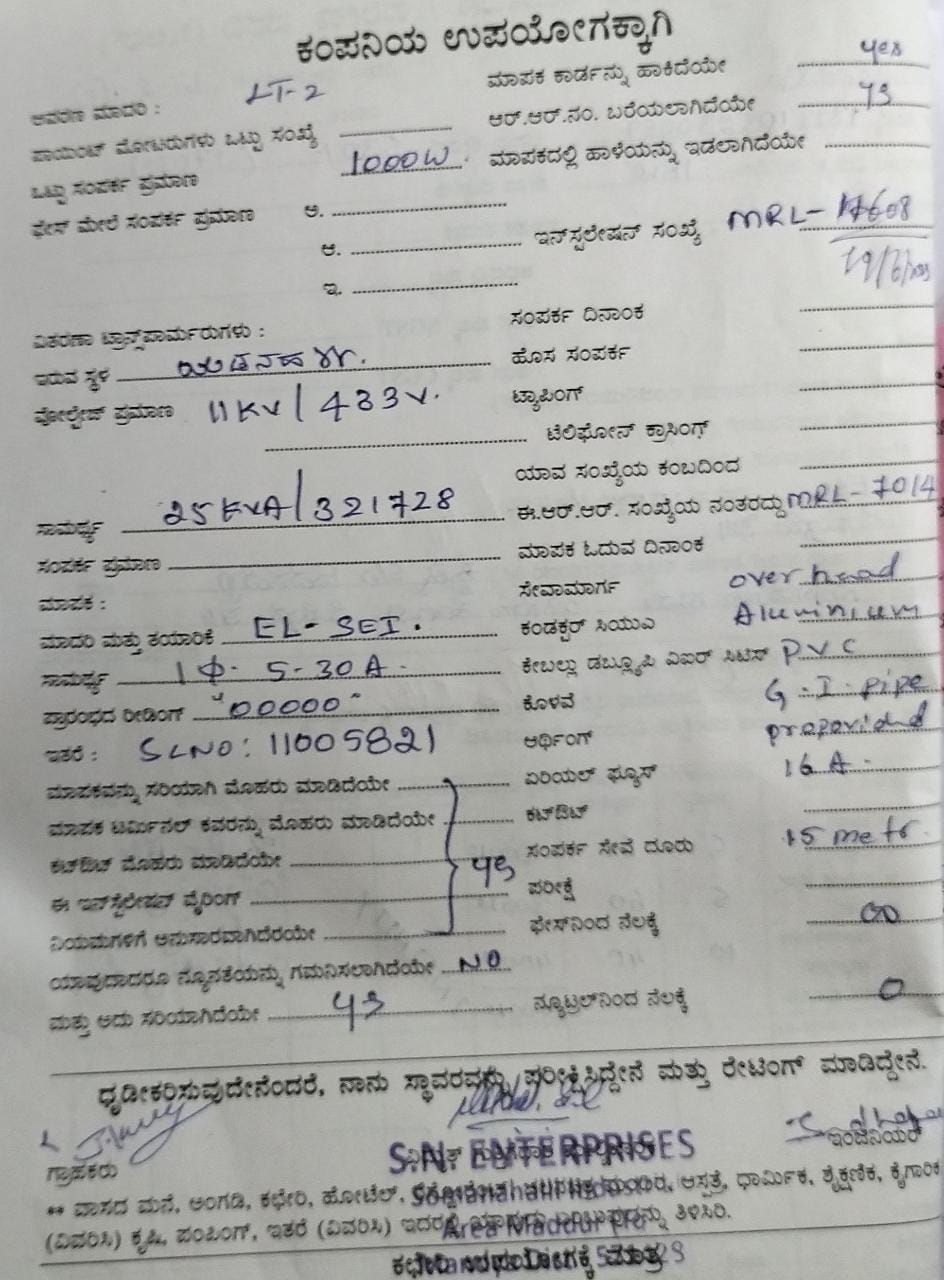 ಕಂಪನಿಯ ಉಪಯೋಗಕ್ಕಾಗಿ
ಆವರಣ ಮಾದರಿ : LT-2
ಪಾಯಿಂಟ್ ಮೋಟರುಗಳು ಒಟ್ಟು ಸಂಖ್ಯೆ
ಒಟ್ಟು ಸಂಪರ್ಕ ಪ್ರಮಾಣ 1000W
ಫೇಸ್ ಮೇಲೆ ಸಂಪರ್ಕ ಪ್ರಮಾಣ ಅ.
ಆ.
ಇ.
ವಿತರಣಾ ಟ್ರಾನ್ಸ್‌ಫಾರ್ಮರುಗಳು :
ಇರುವ ಸ್ಥಳ
ವೋಲ್ಟೇಜ್ ಪ್ರಮಾಣ 11KV/433V.
ಸಾಮರ್ಥ್ಯ 25KVA/321728
ಸಂಪರ್ಕ ಪ್ರಮಾಣ
ಮಾಪಕ :
ಮಾದರಿ ಮತ್ತು ತಯಾರಿಕೆ EL-SEI.
ಸಾಮರ್ಥ್ಯ 1Φ. 5-30A.
ಪ್ರಾರಂಭದ ರೀಡಿಂಗ್ "00000"
ಇತರೆ : SLNO: 11005821
ಮಾಪಕವನ್ನು ಸರಿಯಾಗಿ ಮೊಹರು ಮಾಡಿದೆಯೇ
ಮಾಪಕ ಟರ್ಮಿನಲ್ ಕವರನ್ನು ಮೊಹರು ಮಾಡಿದೆಯೇ
ಕಟ್‌ಔಟ್ ಮೊಹರು ಮಾಡಿದೆಯೇ ys
ಈ ಇನ್‌ಸ್ಟಲೇಷನ್ ವೈರಿಂಗ್
ನಿಯಮಗಳಿಗೆ ಅನುಸಾರವಾಗಿದೆರಯೇ
ಯಾವುದಾದರೂ ನ್ಯೂನತೆಯನ್ನು ಗಮನಿಸಲಾಗಿದೆಯೇ NO
ಮತ್ತು ಅದು ಸರಿಯಾಗಿದೆಯೇ ys
ಮಾಪಕ ಕಾರ್ಡನ್ನು ಹಾಕಿದೆಯೇ yes
ಆರ್.ಆರ್.ನಂ. ಬರೆಯಲಾಗಿದೆಯೇ ys
ಮಾಪಕದಲ್ಲಿ ಹಾಳೆಯನ್ನು ಇಡಲಾಗಿದೆಯೇ
ಇನ್‌ಸ್ಟಲೇಷನ್ ಸಂಖ್ಯೆ MRL-17608
ಸಂಪರ್ಕ ದಿನಾಂಕ
ಹೊಸ ಸಂಪರ್ಕ
ಟ್ಯಾಪಿಂಗ್
ಟೆಲಿಫೋನ್ ಕ್ರಾಸಿಂಗ್
ಯಾವ ಸಂಖ್ಯೆಯ ಕಂಬದಿಂದ
ಈ.ಆರ್.ಆರ್. ಸಂಖ್ಯೆಯ ನಂತರದ್ದು MRL-7014
ಮಾಪಕ ಓದುವ ದಿನಾಂಕ
ಸೇವಾಮಾರ್ಗ over head
ಕಂಡಕ್ಟರ್ ಸಿಯುಎ Aluminium
ಕೇಬಲ್ಲು ಡಬ್ಲ್ಯೂಪಿ ವಿಐಆರ್ ಸಿಟಿಸ್ PVC
ಕೊಳವೆ G.I. pipe
ಆರ್ಥಿಂಗ್ propovided
ಏರಿಯಲ್ ಫ್ಯೂಸ್ 16 A.
ಕಟ್‌ಔಟ್
ಸಂಪರ್ಕ ಸೇವೆ ದೂರು 15 metr.
ಪರೀಕ್ಷೆ
ಫೇಸ್‌ನಿಂದ ನೆಲಕ್ಕೆ
ನ್ಯೂಟ್ರಲ್‌ನಿಂದ ನೆಲಕ್ಕೆ 0
ಧೃಡೀಕರಿಸುವುದೇನೆಂದರೆ, ನಾನು ಸ್ಥಾವರವನ್ನು ಪರೀಕ್ಷಿಸಿದ್ದೇನೆ ಮತ್ತು ರೇಟಿಂಗ್ ಮಾಡಿದ್ದೇನೆ.
ಗ್ರಾಹಕರು S.N. ENTERPRISES ಇಂಜಿನಿಯರ್
** ವಾಸದ ಮನೆ, ಅಂಗಡಿ, ಕಛೇರಿ, ಹೋಟೆಲ್, ಆಸ್ಪತ್ರೆ, ಧಾರ್ಮಿಕ, ಶೈಕ್ಷಣಿಕ, ಕೈಗಾರಿಕ
(ವಿವರಿಸಿ) ಕೃಷಿ, ಪಂಪಿಂಗ್, ಇತರೆ (ವಿವರಿಸಿ) ತಿಳಿಸಿರಿ.
Area Maddur
ಕಛೇರಿ ಉಪಯೋಗಕ್ಕೆ ಮಾತ್ರ